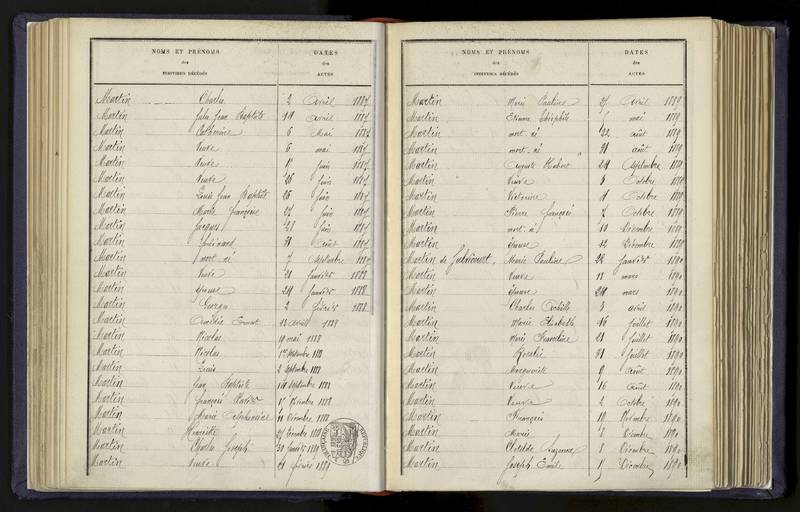 NOMS ET PRÉNOMS
des
INDIVIDUS DÉCÉDÉS
DATES
des
ACTES
Martin Charles 2 Avril 1887
Martin Jules Jean Baptiste 11 Avril 1887
Martin Catherine 6 Mai 1887
Martin Veuve 6 mai 1887
Martin Veuve Juin 1887
Martin Veuve 26 Juin 1887
Martin Louis Jean Baptiste 26 Juin 1887
Martin Marie Françoise 27 Juin 1887
Martin Jacques 28 Juin 1887
Martin Ferdinand 31 Août 1887
Martin mort né 7 Septembre 1887
Martin Veuve 20 Janvier 1888
Martin épouse 29 Janvier 1888
Martin Georges 2 février 1888
Martin Amédée Ernest 13 avril 1888
Martin Nicolas 10 mai 1888
Martin Nicolas 1er Septembre 1888
Martin Louis 2 Septembre 1888
Martin Jean Baptiste Septembre 1888
Martin François Xavier Décembre 1888
Martin Marie Alphonsine 11 Décembre 1888
Martin Henriette 24 Décembre 1888
Martin Charles Joseph 30 Janvier 1889
Martin Veuve février 1889
NOMS ET PRÉNOMS
des
INDIVIDUS DÉCÉDÉS
DATES
des
ACTES
Martin Marie Pauline 27 Avril 1889
Martin Etienne Théophile mai 1889
Martin mort-né 22 août 1889
Martin mort-né 31 août 1889
Martin Auguste 29 Septembre 1889
Martin Veuve 3 Octobre 1889
Martin Victorine Octobre 1889
Martin Pierre François 7 Octobre 1889
Martin mort-né 10 Décembre 1889
Martin épouse 12 Décembre 1889
Martin de Julvécourt. Marie Pauline 28 Janvier 1890
Martin Veuve 11 mars 1890
Martin épouse 24 mars 1890
Martin Charles 3 avril 1890
Martin Marie Elisabeth 16 Juillet 1890
Martin Marie Francoline 21 Juillet 1890
Martin Rosalie 31 Juillet 1890
Martin Marguerite 9 Août 1890
Martin Veuve 16 Août 1890
Martin Veuve 2 Octobre 1890
Martin François 10 Novembre 1890
Martin Marie Décembre 1890
Martin Clotilde Suzanne Décembre 1890
Martin Joseph Emile Décembre 1890